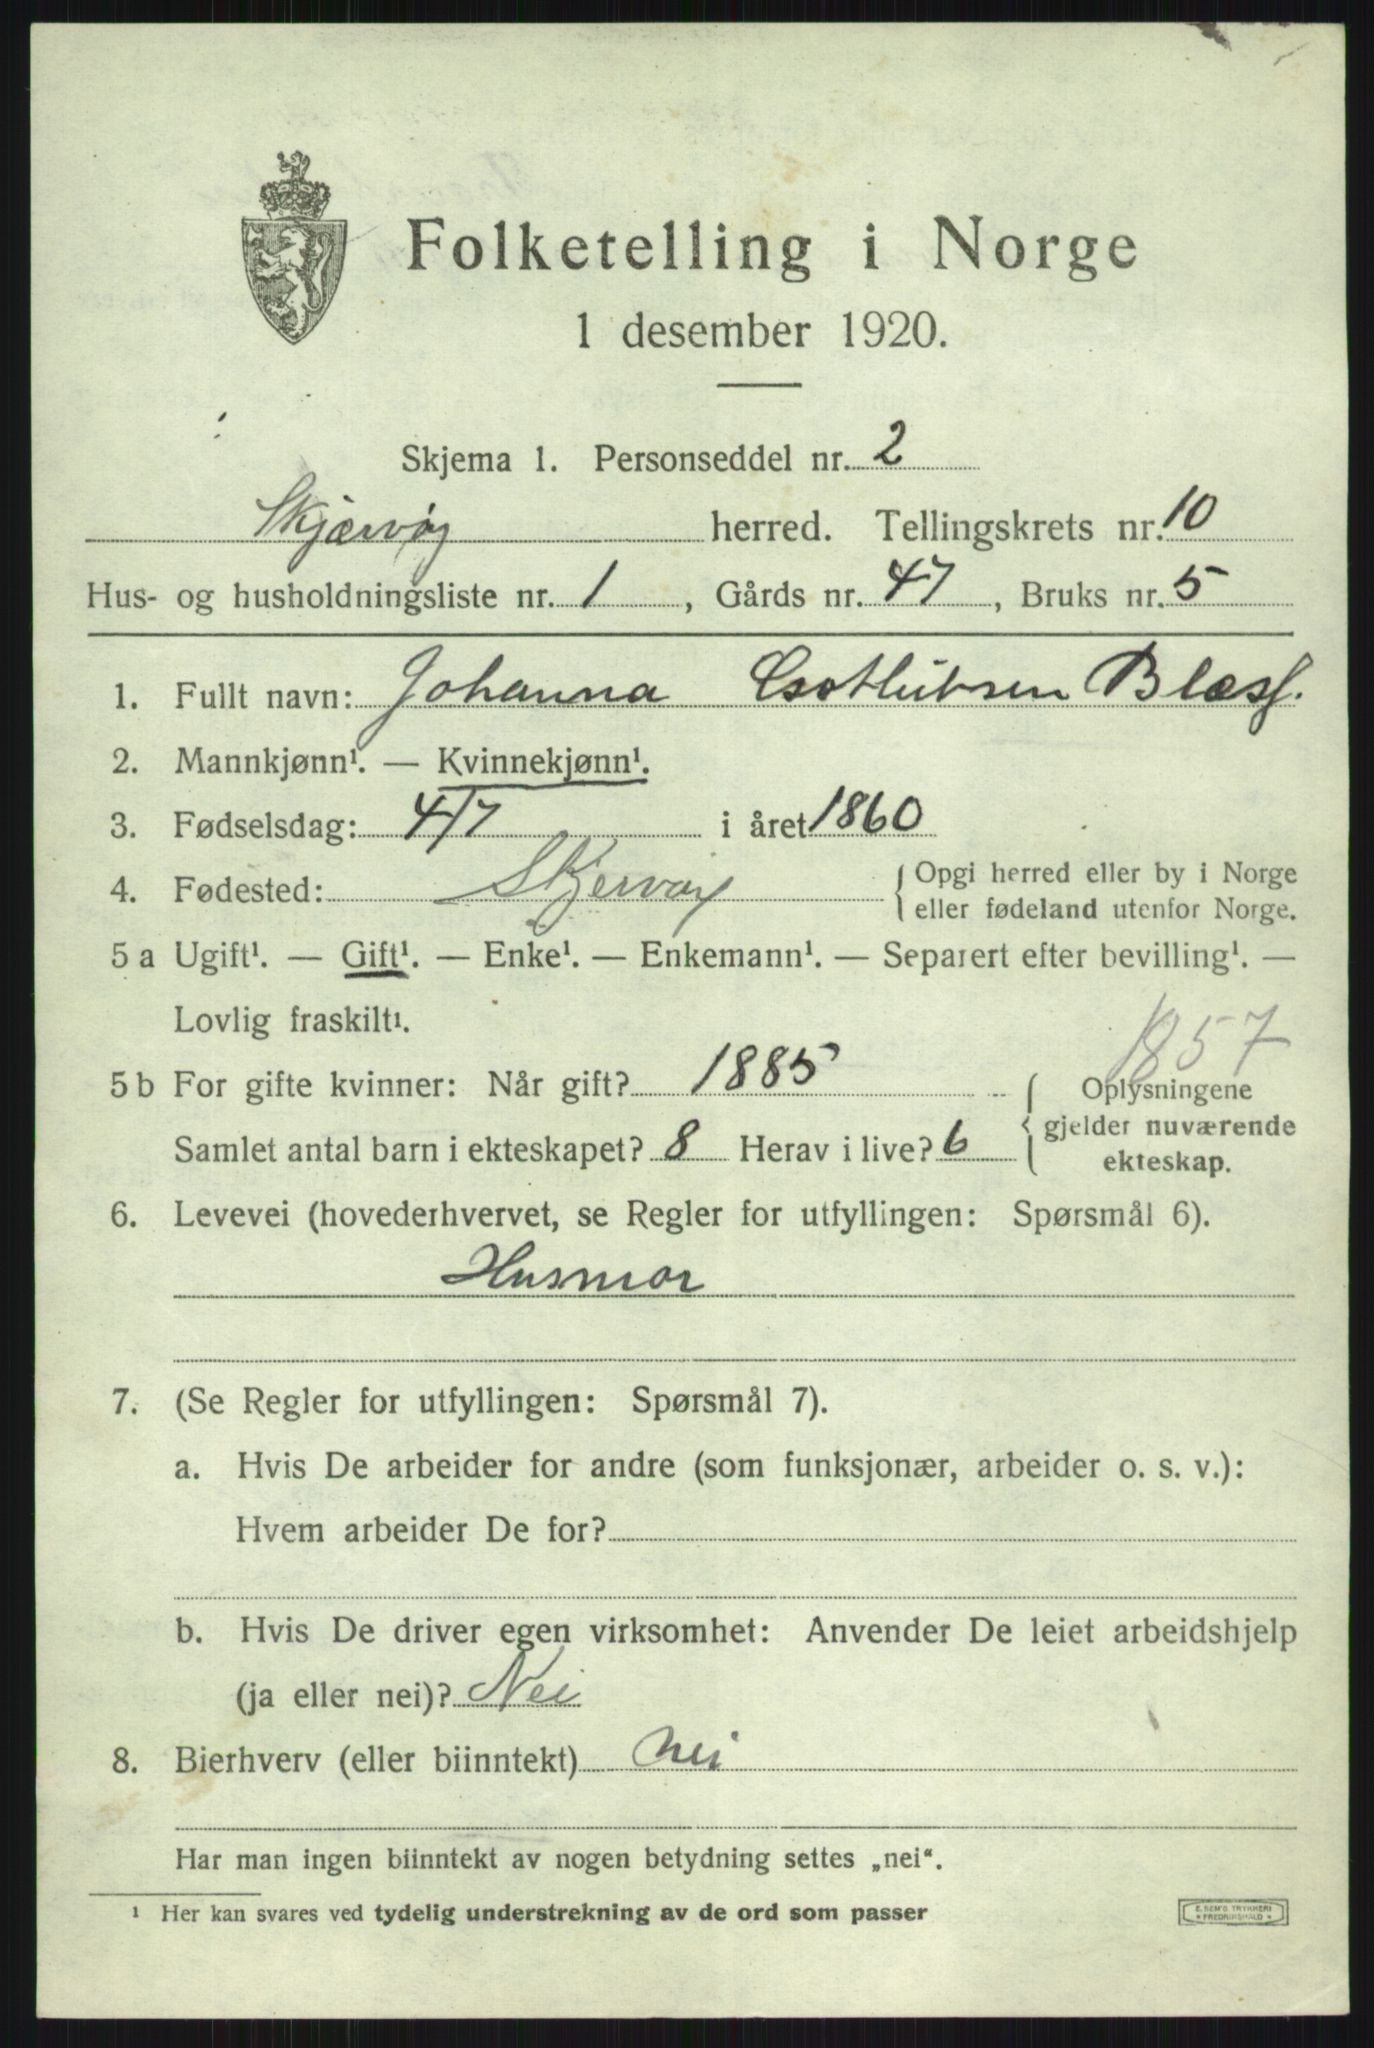 Folketelling i Norge
1 desember 1920.
Skjema 1. Personseddel nr. 2
Skjærvøy herred. Tellingskrets nr. 10
Hus- og husholdningsliste nr. 1, Gårds nr. 47, Bruks nr. 5
1. Fullt navn: Johanna Blæsf.
2. Mannkjønn¹. — Kvinnekjønn¹.
3. Fødselsdag: 4/7 i året 1860
4. Fødested: Skjervøy { Opgi herred eller by i Norge
eller fødeland utenfor Norge.
5 a Ugift¹. — Gift¹. — Enke¹. — Enkemann¹. — Separert efter bevilling¹. —
Lovlig fraskilt¹.
1857
5 b For gifte kvinner: Når gift? 1885
Samlet antal barn i ekteskapet? 8 Herav i live? 6
{ Oplysningene
gjelder nuværende
ekteskap.
6. Levevei (hovederhvervet, se Regler for utfyllingen: Spørsmål 6).
Husmor
7. (Se Regler for utfyllingen: Spørsmål 7).
a. Hvis De arbeider for andre (som funksjonær, arbeider o. s. v.):
Hvem arbeider De for?
b. Hvis De driver egen virksomhet: Anvender De leiet arbeidshjelp
(ja eller nei)? Nei
8. Bierhverv (eller biinntekt) nei
Har man ingen biinntekt av nogen betydning settes „nei“.
¹ Her kan svares ved tydelig understrekning av de ord som passer
E. SEM'S TRYKKERI
FREDRIKSHALD